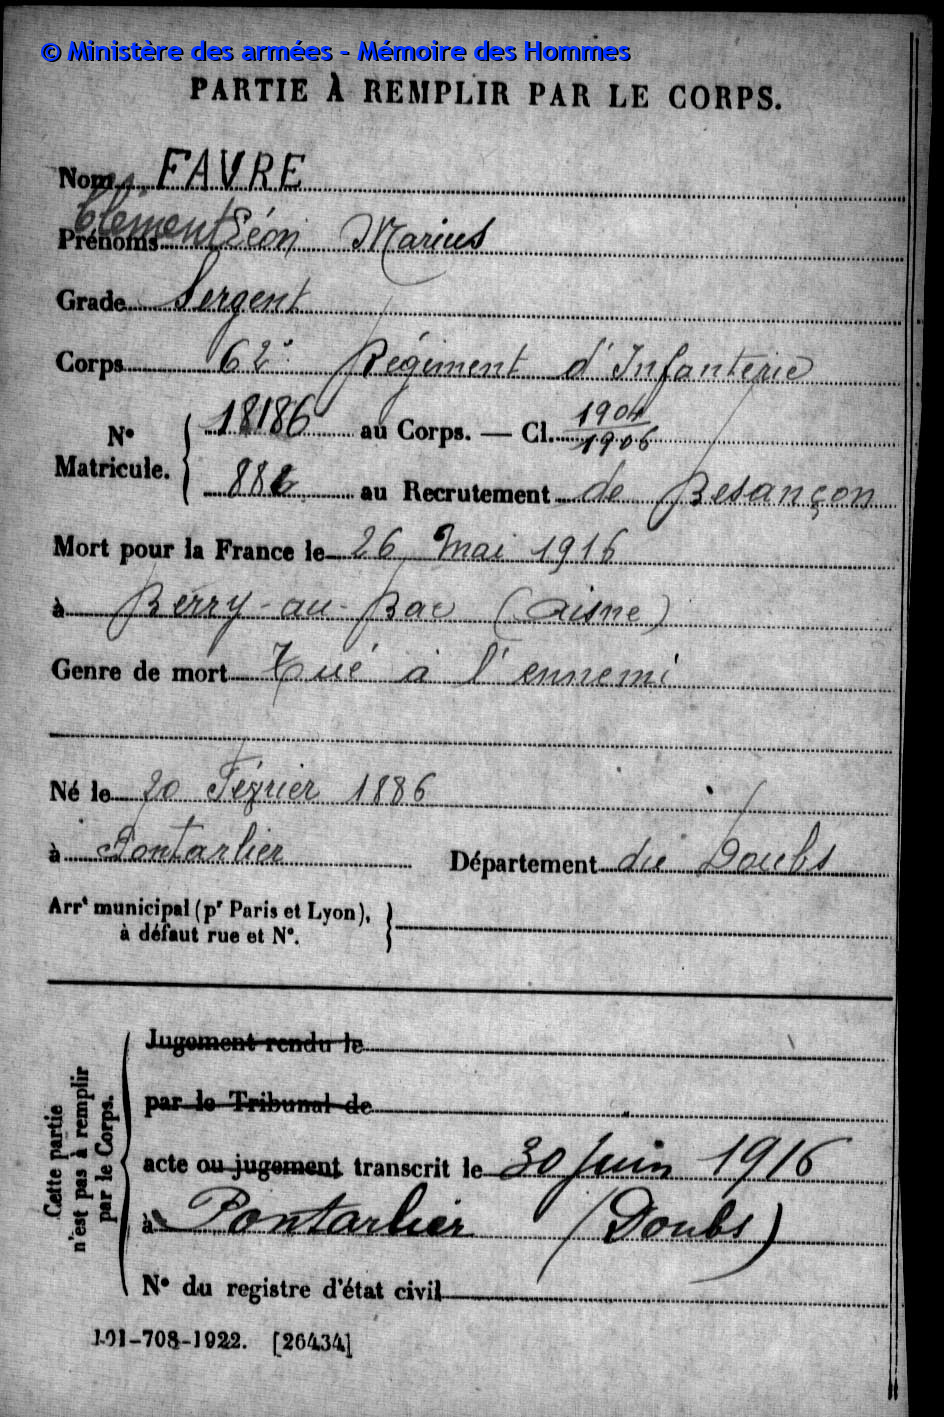 © Ministère des armées - Mémoire des Hommes
PARTIE À REMPLIR PAR LE CORPS.
Nom FAVRE
Clément
Prénoms Léon Marius
Grade Sergent
Corps 62e Régiment d'Infanterie
N° Matricule. 18186 au Corps. — Cl. 1904 / 1906
886 au Recrutement de Besançon
Mort pour la France le 26 Mai 1916
à Berry-au-Bac (Aisne)
Genre de mort Tué à l'ennemi
Né le 20 Février 1886
à Pontarlier Département du Doubs
Arrt municipal (pr Paris et Lyon),
à défaut rue et N°.
Cette partie
n'est pas à remplir
par le Corps.
Jugement rendu le
par le Tribunal de
acte ou jugement transcrit le 30 Juin 1916
à Pontarlier (Doubs)
N° du registre d'état civil
101-708-1922. [26434]